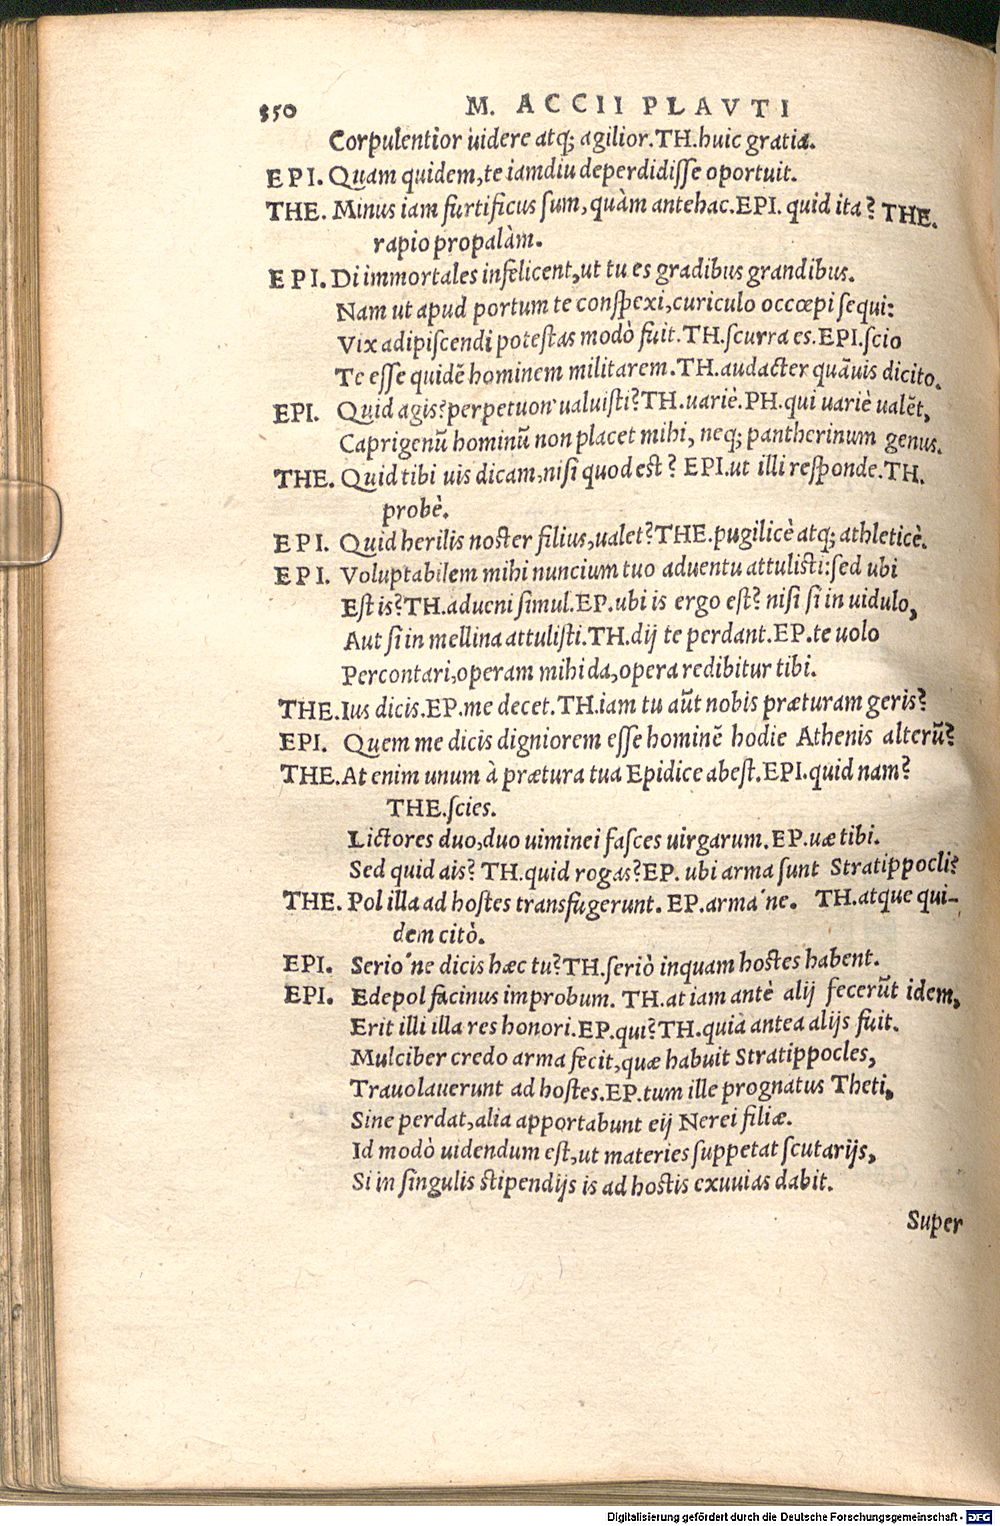 350 M. ACCII PLAVTI
Corpulentior uidere atq; agilior.TH.huic gratia.
EPI. Quam quidem,te iamdiu deperdidisse oportuit.
THE. Minus iam furtificus sum,quàm antehac.EPI. quid ita? THE.
rapio propalàm.
EPI. Di immortales infelicent,ut tu es gradibus grandibus.
Nam ut apud portum te conspexi,curiculo occœpi sequi:
Vix adipiscendi potestas modò fuit.TH.scurra es.EPI.scio
Te esse quidē hominem militarem.TH.audacter quāuis dicito.
EPI. Quid agis?perpetuon'ualuisti?TH.uariè.PH.qui uariè ualēt,
Caprigenū hominū non placet mihi, neq; pantherinum genus.
THE. Quid tibi uis dicam,nisi quod est? EPI.ut illi responde.TH.
probè.
EPI. Quid herilis noster filius,ualet?THE.pugilicè atq; athleticè.
EPI. Voluptabilem mihi nuncium tuo aduentu attulisti:sed ubi
Est is?TH.adueni simul.EP.ubi is ergo est? nisi si in uidulo,
Aut si in mellina attulisti.TH.dij te perdant.EP.te uolo
Percontari,operam mihi da,opera redibitur tibi.
THE.Ius dicis.EP.me decet.TH.iam tu aūt nobis præturam geris?
EPI. Quem me dicis digniorem esse hominē hodie Athenis alterū?
THE.At enim unum à prætura tua Epidice abest.EPI.quid nam?
THE.scies.
Lictores duo,duo uiminei fasces uirgarum.EP.uæ tibi.
Sed quid ais? TH.quid rogas?EP. ubi arma sunt Stratippocli?
THE. Pol illa ad hostes transfugerunt. EP.arma'ne. TH.atque qui-
dem citò.
EPI. Serio'ne dicis hæc tu?TH.seriò inquam hostes habent.
EPI. Edepol facinus improbum. TH.at iam antè alij fecerūt idem,
Erit illi illa res honori.EP.qui?TH.quia antea alijs fuit.
Mulciber credo arma fecit,quæ habuit Stratippocles,
Trauolauerunt ad hostes.EP.tum ille prognatus Theti,
Sine perdat,alia apportabunt eij Nerei filiæ.
Id modò uidendum est,ut materies suppetat scutarijs,
Si in singulis stipendijs is ad hostis exuuias dabit.
Super
Digitalisierung gefördert durch die Deutsche Forschungsgemeinschaft - DFG